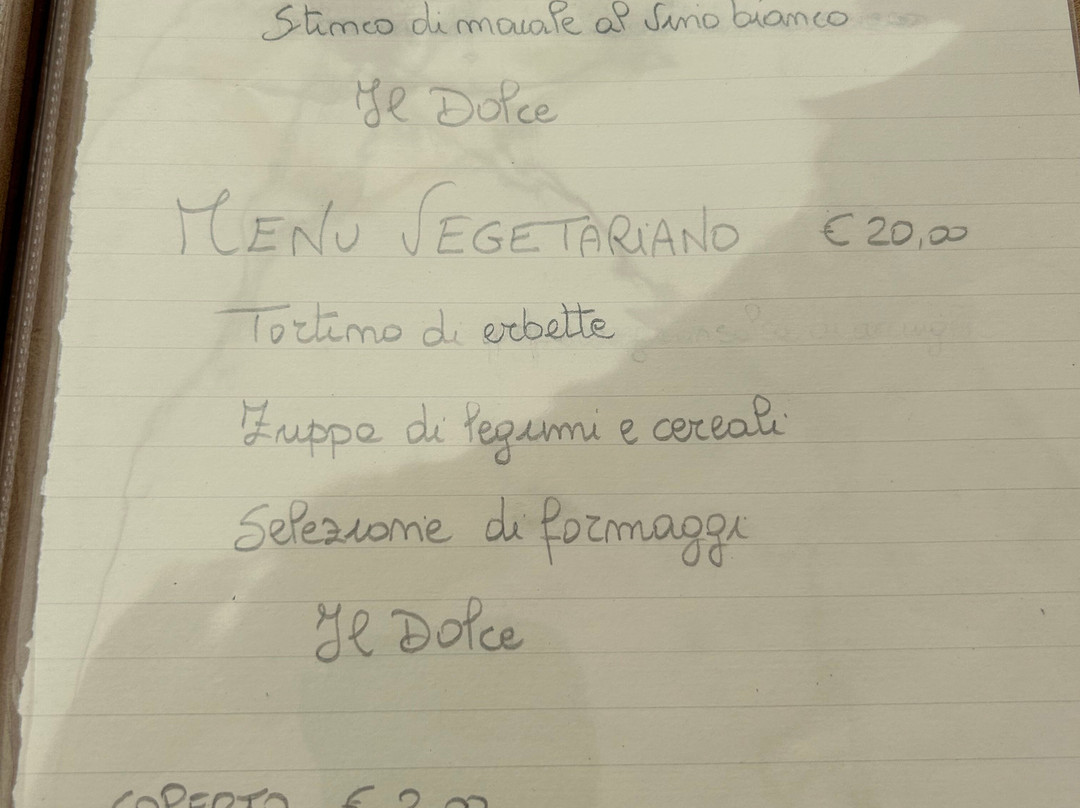 Stinco di maiale al vino bianco
Il Dolce
MENU VEGETARIANO € 20,00
Tortino di erbette
Zuppa di legumi e cereali
Selezione di formaggi
Il Dolce
COPERTO € 2,00